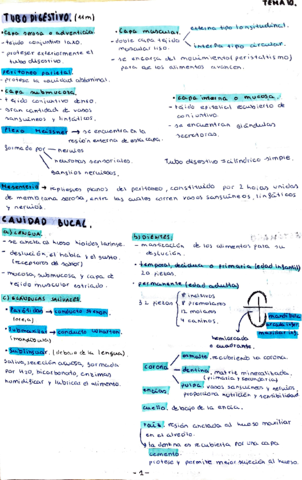 TEMA 10.
TUBO DIGESTIVO. (11m)
• Capa serosa o adventicia
• tejido conjuntivo laxo.
• protege exteriormente el tubo digestivo.
peritoneo parietal
• protege la cavidad abdominal.
• Capa submucosa.
• tejido conjuntivo denso.
• gran cantidad de vasos sanguíneos y linfáticos.
Plexo Meissner → se encuentra en la región externa de esta capa.
formado por → nervios
neuronas sensoriales.
ganglios nerviosos.
• Capa muscular.
• doble capa tejido muscular liso.
externa tipo longitudinal.
interna tipo circular.
• se encarga del movimiento (peristaltismo) para que los alimentos avancen.
• capa interna o mucosa.
• tejido epitelial cubierto de conjuntivo
• se encuentran glándulas secretoras.
Tubo digestivo ≠ cilindro simple.
Mesenterio → repliegues planos del peritoneo, constituido por 2 hojas unidas
de membrana serosa, entre las cuales corren vasos sanguíneos, linfáticos
y nervios.
CAVIDAD BUCAL.
a) LENGUA
• se ancla al hueso hioides, laringe.
• deglución, el habla y el gusto. (receptores de sabor)
• mucosa, submucosa y capa de tejido muscular estriado.
c) GLÁNDULAS SALIVALES.
• Parótidas → conducto
• submaxilar → conducto Wharton.
• Sublingual. (debajo de la lengua)
saliva, secreción acuosa, formada
por H2O, bicarbonato, enzimas
humidificar y lubrica el alimento.
b) DIENTES.
• masticación de los alimentos para su deglución.
• temporal, decidua o primaria (edad infantil)
20 piezas.
• permanente (edad adulta)
32 piezas
8 incisivos
8 premolares
12 molares
4 caninos.
hemiarcada o cuadrante.
corona
esmalte, recubriendo la corona.
dentina, matriz mineralizada, (primaria y secundaria)
pulpa, vasos sanguíneos y nervios, proporciona nutrición y sensibilidad
encías,
cuello, debajo de la encía.
raíz, región anclada al hueso maxilar en el alveolo.
la dentina es cubierta por una capa
cemento
protege y permite mejor sujeción al hueso.
- 1 -